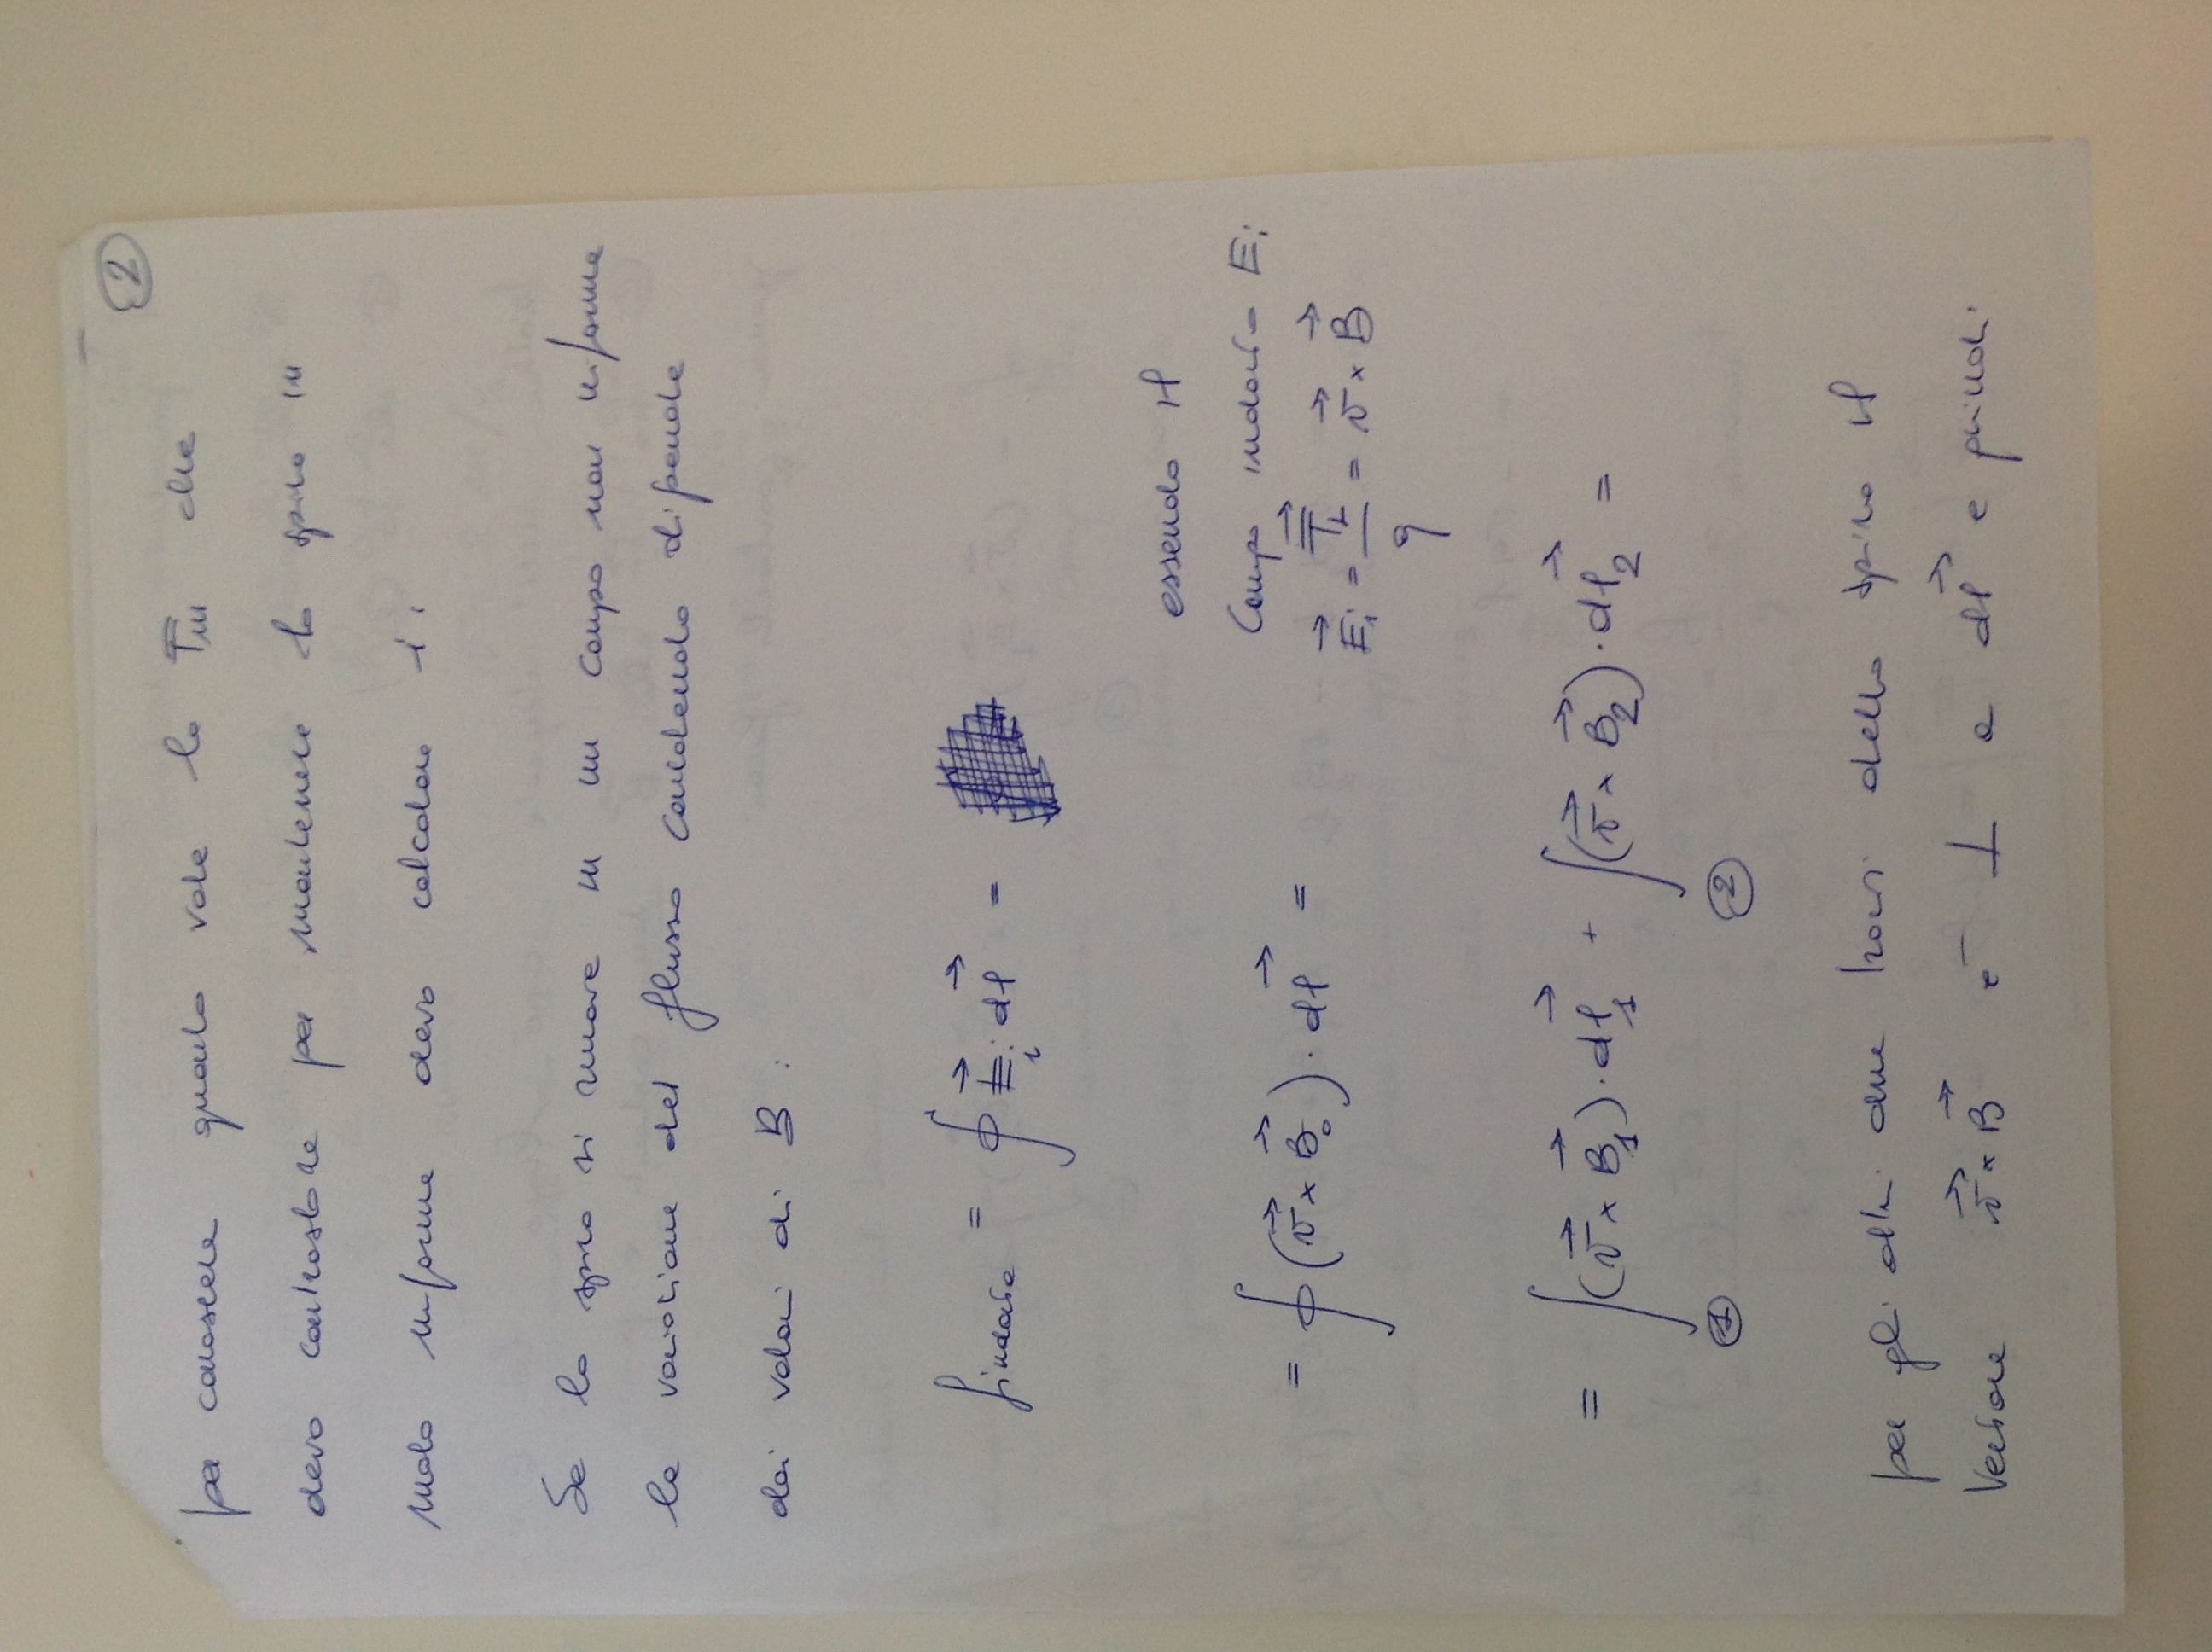 2
per conoscere quanto vale la Fm che
devo contrastare per mantenere la spira in
modo uniforme devo calcolare i.
Se la spira si muove in un campo non uniforme
la variazione del flusso concatenato dipende
dai valori di B :
f indotta = ∮ E⃗i dl⃗ =
essendo il
Campo indotto Ei
= ∮ (v⃗ × B⃗0) · dl⃗ =
E⃗i = F⃗L / q = v⃗ × B⃗
= ∫(v⃗ × B⃗1) · dl⃗1 + ∫(v⃗ × B⃗2) · dl⃗2 =
1 2
per gli altri due tratti della spira il
Vettore v⃗ × B⃗ è ⊥ a dl⃗ e quindi